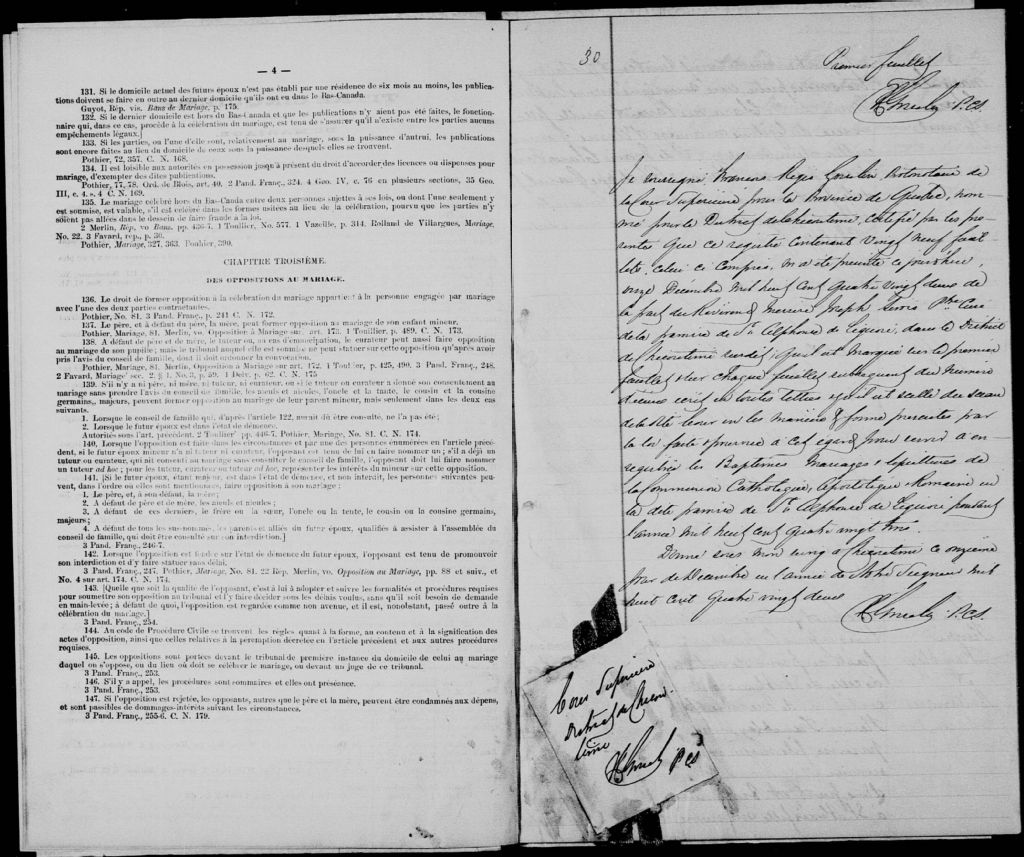 — 4 —
131. Si le domicile actuel des futurs époux n'est pas établi par une résidence de six mois au moins, les publica-
tions doivent se faire en outre au dernier domicile qu'ils ont eu dans le Bas-Canada.
Guyot, Rép. vis. Bans de Mariage, p. 175.
132. Si le dernier domicile est hors du Bas-Canada et que les publications n'y aient pas été faites, le fonction-
naire qui, dans ce cas, procède à la célébration du mariage, est tenu de s'assurer qu'il n'existe entre les parties aucuns
empêchements légaux.]
133. Si les parties, ou l'une d'elles sont, relativement au mariage, sous la puissance d'autrui, les publications
sont encore faites au lieu du domicile de ceux sous la puissance desquels elles se trouvent.
Pothier, 72, 357. C. N. 168.
134. Il est loisible aux autorités en possession jusqu'à présent du droit d'accorder des licences ou dispenses pour
mariage, d'exempter des dites publications.
Pothier, 77, 78. Ord. de Blois, art. 40. 2 Pand. Franç., 324. 4 Geo. IV, c. 76 en plusieurs sections, 35 Geo.
III, c. 4. s. 4 C. N. 169.
135. Le mariage célébré hors du Bas-Canada entre deux personnes sujettes à ses lois, ou dont l'une seulement y
est soumise, est valable, s'il est célébré dans les formes usitées au lieu de la célébration, pourvu que les parties n'y
soient pas allées dans le dessein de faire fraude à la loi.
2 Merlin, Rép. vo Bans. pp. 436-7. 1 Toullier, No. 577. 1 Vazeille, p. 314. Rolland de Villargues, Mariage,
No. 22. 3 Favard, rép., p. 30.
Pothier, Mariage, 327, 363. Toullier, 390.
CHAPITRE TROISIÈME.
DES OPPOSITIONS AU MARIAGE.
136. Le droit de former opposition à la célébration du mariage appartient à la personne engagée par mariage
avec l'une des deux parties contractantes.
Pothier, No. 81. 3 Pand. Franç., p. 241 C. N. 172.
137. Le père, et à défaut du père, la mère, peut former opposition au mariage de son enfant mineur.
Pothier, Mariage, 81. Merlin, vo. Opposition à Mariage sur. art. 173. 1 Toullier. p. 489. C. N. 173.
138. A défaut de père et de mère, le tuteur ou, au cas d'émancipation, le curateur peut aussi faire opposition
au mariage de son pupille ; mais le tribunal auquel elle est soumise ne peut statuer sur cette opposition qu'après avoir
pris l'avis du conseil de famille, dont il doit ordonner la convocation.
Pothier, Mariage, 81. Merlin, Opposition à Mariage sur art. 172. 1 Toullier, p. 425, 490. 3 Pand. Franç., 248.
2 Favard, Mariage sec. 2. § 1. No. 3, p. 59. 1 Delv. p. 62. C. N. 175
139. S'il n'y a ni père, ni mère, ni tuteur, ni curateur, ou si le tuteur ou curateur a donné son consentement au
mariage sans prendre l'avis du conseil de famille, les aïeuls et aïeules, l'oncle et la tante, le cousin et la cousine
germains, majeurs, peuvent former opposition au mariage de leur parent mineur, mais seulement dans les deux cas
suivants.
1. Lorsque le conseil de famille qui, d'après l'article 122, aurait dû être consulté, ne l'a pas été ;
2. Lorsque le futur époux est dans l'état de démence.
Autorités sous l'art. précédent. 2 Toullier pp. 446-7. Pothier, Mariage, No. 81. C. N. 174.
140. Lorsque l'opposition est faite dans les circonstances et par une des personnes énumérées en l'article précé-
dent, si le futur époux mineur n'a ni tuteur ni curateur, l'opposant est tenu de lui en faire nommer un ; s'il a déjà un
tuteur ou curateur, qui ait consenti au mariage sans consulter le conseil de famille, l'opposant doit lui faire nommer
un tuteur ad hoc ; pour les tuteur, curateur ou tuteur ad hoc, représenter les intérêts du mineur sur cette opposition.
141. [Si le futur époux, étant majeur, est dans l'état de démence, et non interdit, les personnes suivantes peu-
vent, dans l'ordre où elles sont mentionnées, faire opposition à son mariage :
1. Le père, et, à son défaut, la mère ;
2. A défaut de père et de mère, les aïeuls et aïeules ;
3. A défaut de ces derniers, le frère ou la sœur, l'oncle ou la tante, le cousin ou la cousine germains,
majeurs ;
4. A défaut de tous les sus-nommés, les parents et alliés du futur époux, qualifiés à assister à l'assemblée du
conseil de famille, qui doit être consulté sur son interdiction.]
3 Pand. Franç., 246-7.
142. Lorsque l'opposition est fondée sur l'état de démence du futur époux, l'opposant est tenu de promouvoir
son interdiction et d'y faire statuer sans délai.
3 Pand. Franç., 247. Pothier, Mariage, No. 81. 22 Rép. Merlin, vo. Opposition au Mariage, pp. 88 et suiv., et
No. 4 sur art. 174. C. N. 174.
143. [Quelle que soit la qualité de l'opposant, c'est à lui à adopter et suivre les formalités et procédures requises
pour soumettre son opposition au tribunal et l'y faire décider sous les délais voulus, sans qu'il soit besoin de demande
en main-levée ; à défaut de quoi, l'opposition est regardée comme non avenue, et il est, nonobstant, passé outre à la
célébration du mariage.]
3 Pand. Franç., 254.
144. Au code de Procédure Civile se trouvent les règles quant à la forme, au contenu et à la signification des
actes d'opposition, ainsi que celles relatives à la péremption décrétée en l'article précédent et aux autres procédures
requises.
145. Les oppositions sont portées devant le tribunal de première instance du domicile de celui au mariage
duquel on s'oppose, ou du lieu où doit se célébrer le mariage, ou devant un juge de ce tribunal.
3 Pand. Franç., 253.
146. S'il y a appel, les procédures sont sommaires et elles ont préséance.
3 Pand. Franç., 253.
147. Si l'opposition est rejetée, les opposants, autres que le père et la mère, peuvent être condamnés aux dépens,
et sont passibles de dommages-intérêts suivant les circonstances.
3 Pand. Franç., 255-6. C. N. 179.
30
Premier feuillet
P.C.S.
Je soussigné, François Régis Gosselin Protonotaire de
la Cour Supérieure pour la Province de Québec, nom-
mé pour le District de Chicoutimi certifie par les pré-
sentes que ce registre contenant vingt neuf feuil-
lets, celui ci compris, m'a été présenté ce jourd'hui
onze Décembre mil huit cent quatre vingt deux de
la part du Révérend Messire Joseph Ptre Curé
de la paroisse de St. Alphonse de Liguori, dans le District
de Chicoutimi susdit; qu'il est marqué sur le premier
feuillet & sur chaque feuillet subséquent du numéro
d'iceux écrit en toutes lettres & qu'il est scellé du sceau
de la dite Cour en la manière & forme prescrites par
la loi faite & pourvue à cet égard pour servir à en-
registrer les Baptêmes Mariages & Sépultures de
la Communion Catholique, Apostolique & Romaine en
la dite paroisse de St. Alphonse de Liguori pendant
l'année mil huit cent quatre vingt trois
Donné sous mon seing à Chicoutimi ce onzième
jour de Décembre en l'année de Notre Seigneur mil
huit cent quatre vingt deux
P.C.S.
Cour Supérieure
District de Chicou-
timi
P.C.S.